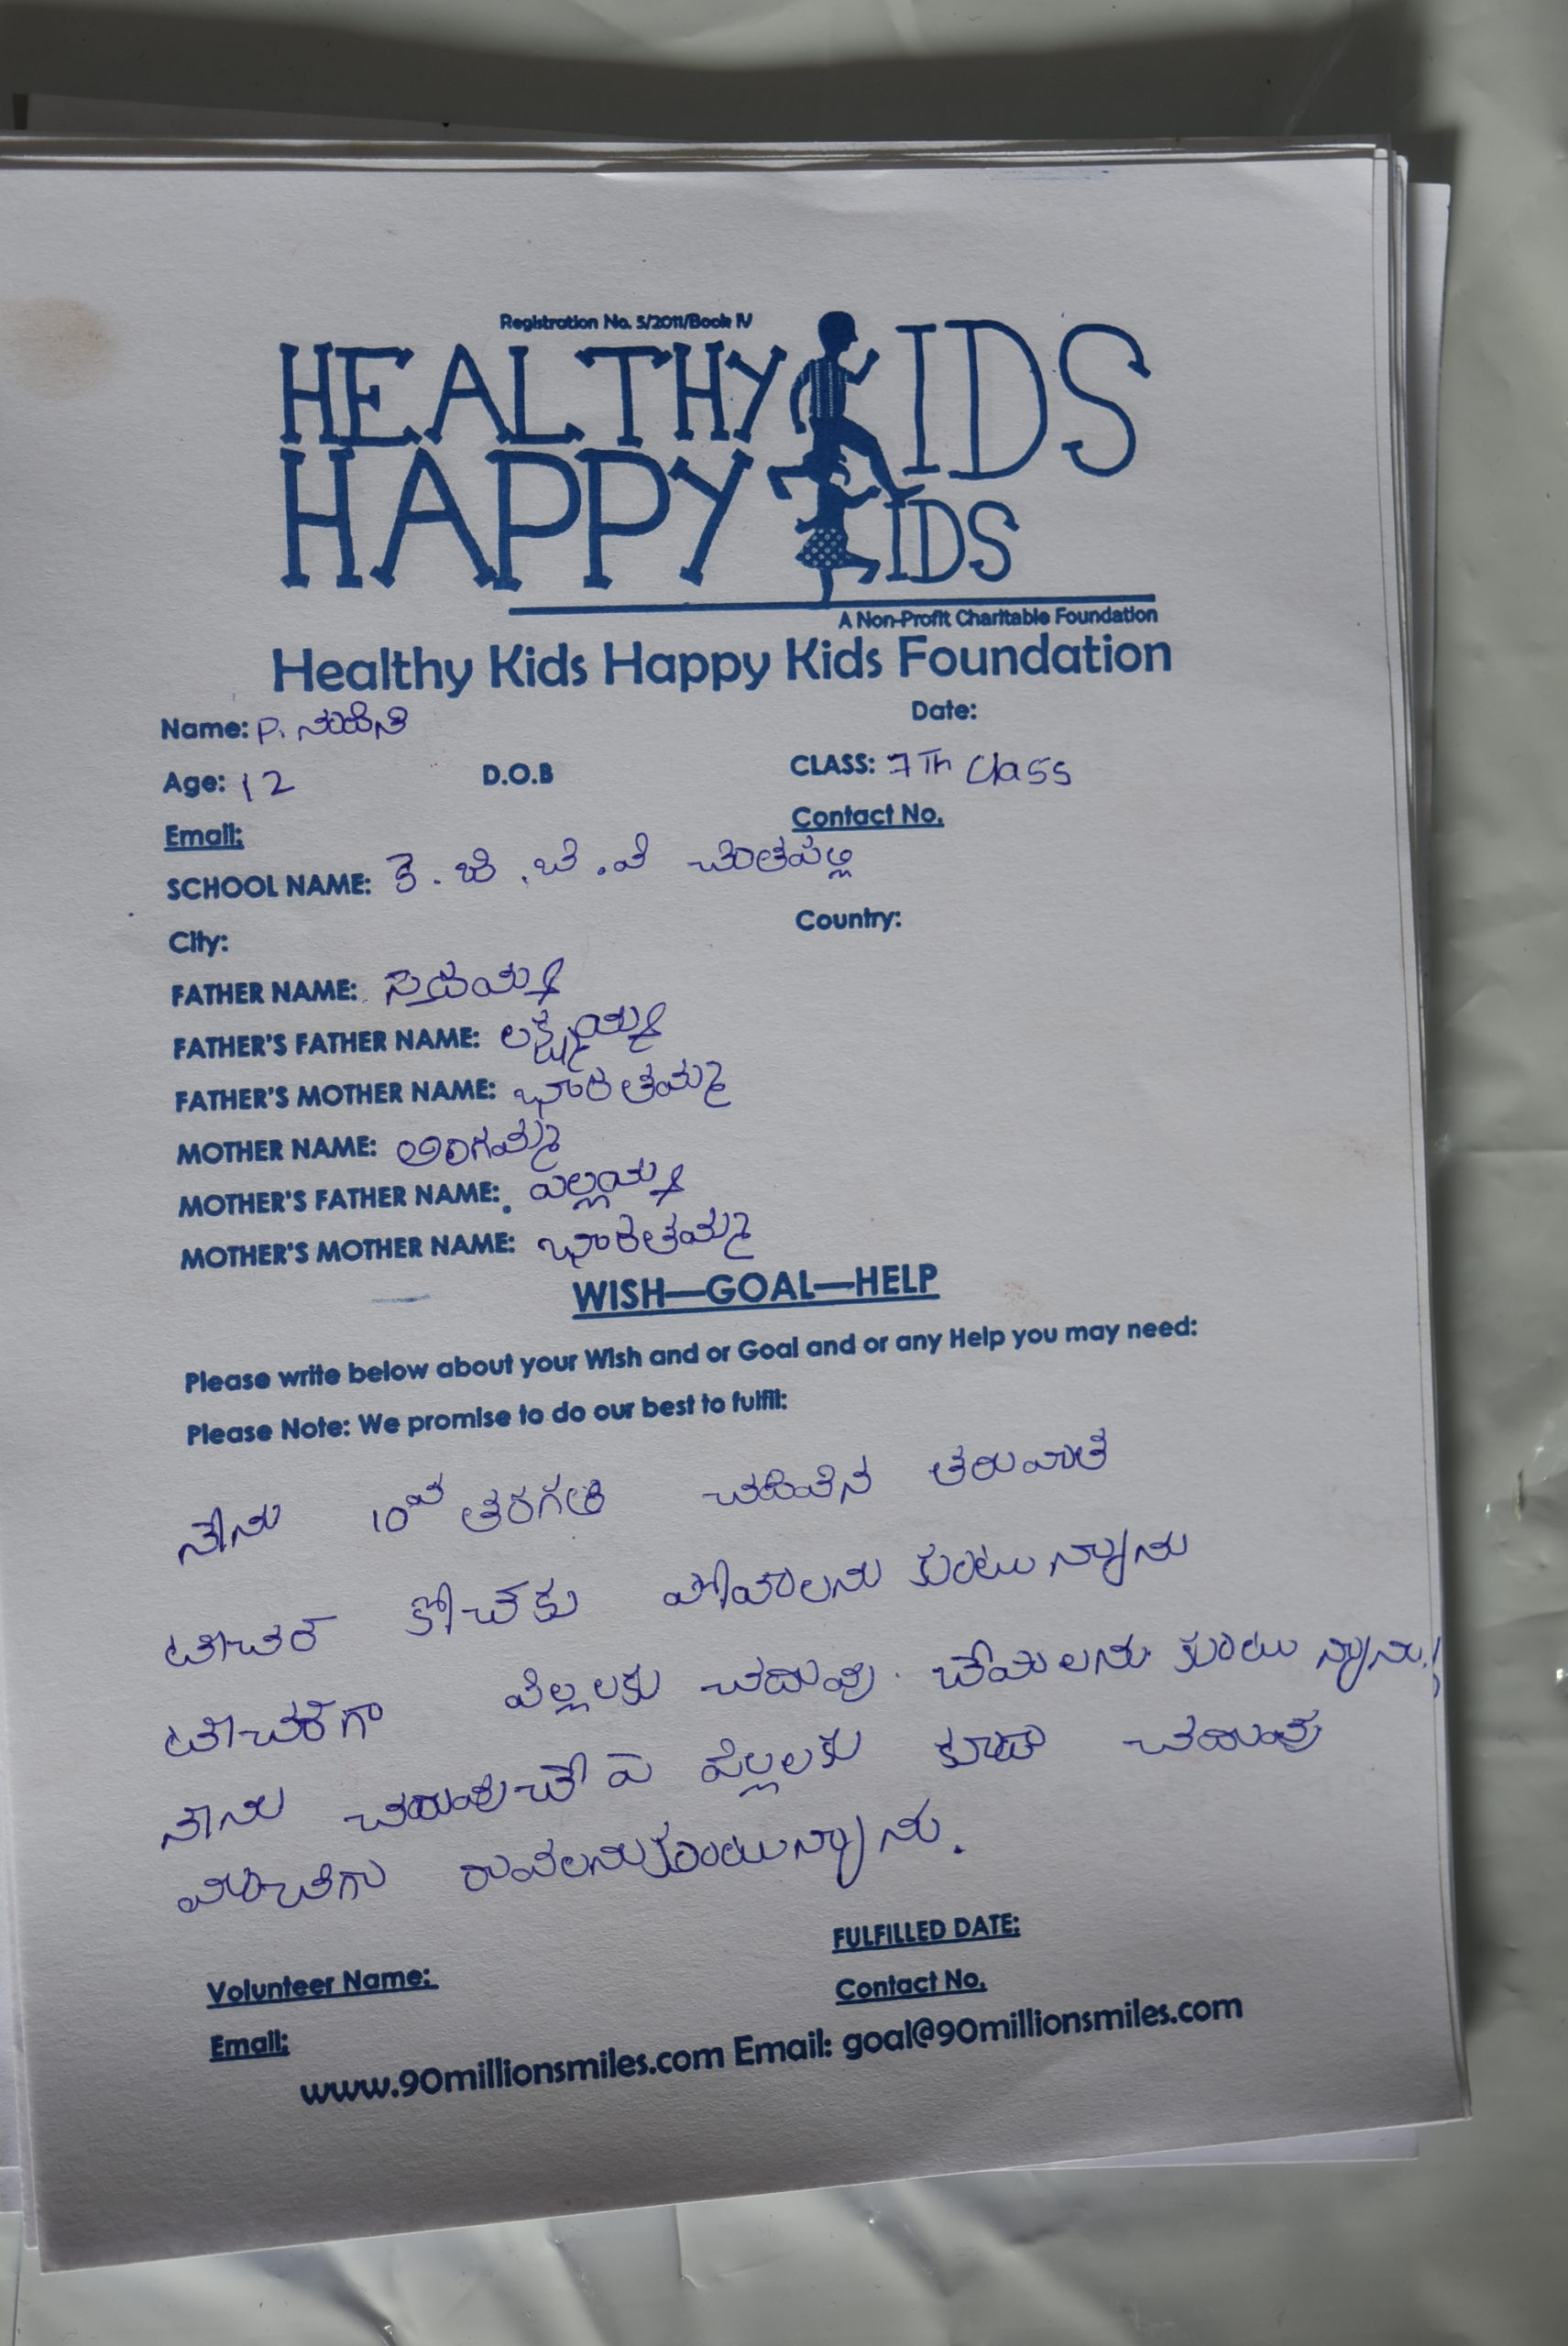 Registration No. 5/2011/Book IV
HEALTHY KIDS
HAPPY KIDS
A Non-Profit Charitable Foundation
Healthy Kids Happy Kids Foundation
Name: P. Date:
Age: 12 D.O.B CLASS: 7Th Class
Email: Contact No.
SCHOOL NAME: కె. జి. బి. వి చింతపల్లి
City: Country:
FATHER NAME:
FATHER'S FATHER NAME: లక్ష్మయ్య
FATHER'S MOTHER NAME: భారతమ్మ
MOTHER NAME:
MOTHER'S FATHER NAME:
MOTHER'S MOTHER NAME: భారతమ్మ
WISH—GOAL—HELP
Please write below about your Wish and or Goal and or any Help you may need:
Please Note: We promise to do our best to fulfil:
నేను 10వ తరగతి చదివిన తరువాత
టీచర్ కోచ్‌కు పోవాలను కుంటు న్నాను
టీచర్‌గా పిల్లలకు చదువు చేయలను కుంటు న్నాను.
నాను పిల్లలకు కూడా చదువు
Volunteer Name: FULFILLED DATE:
Email: Contact No.
www.90millionsmiles.com Email: goal@90millionsmiles.com